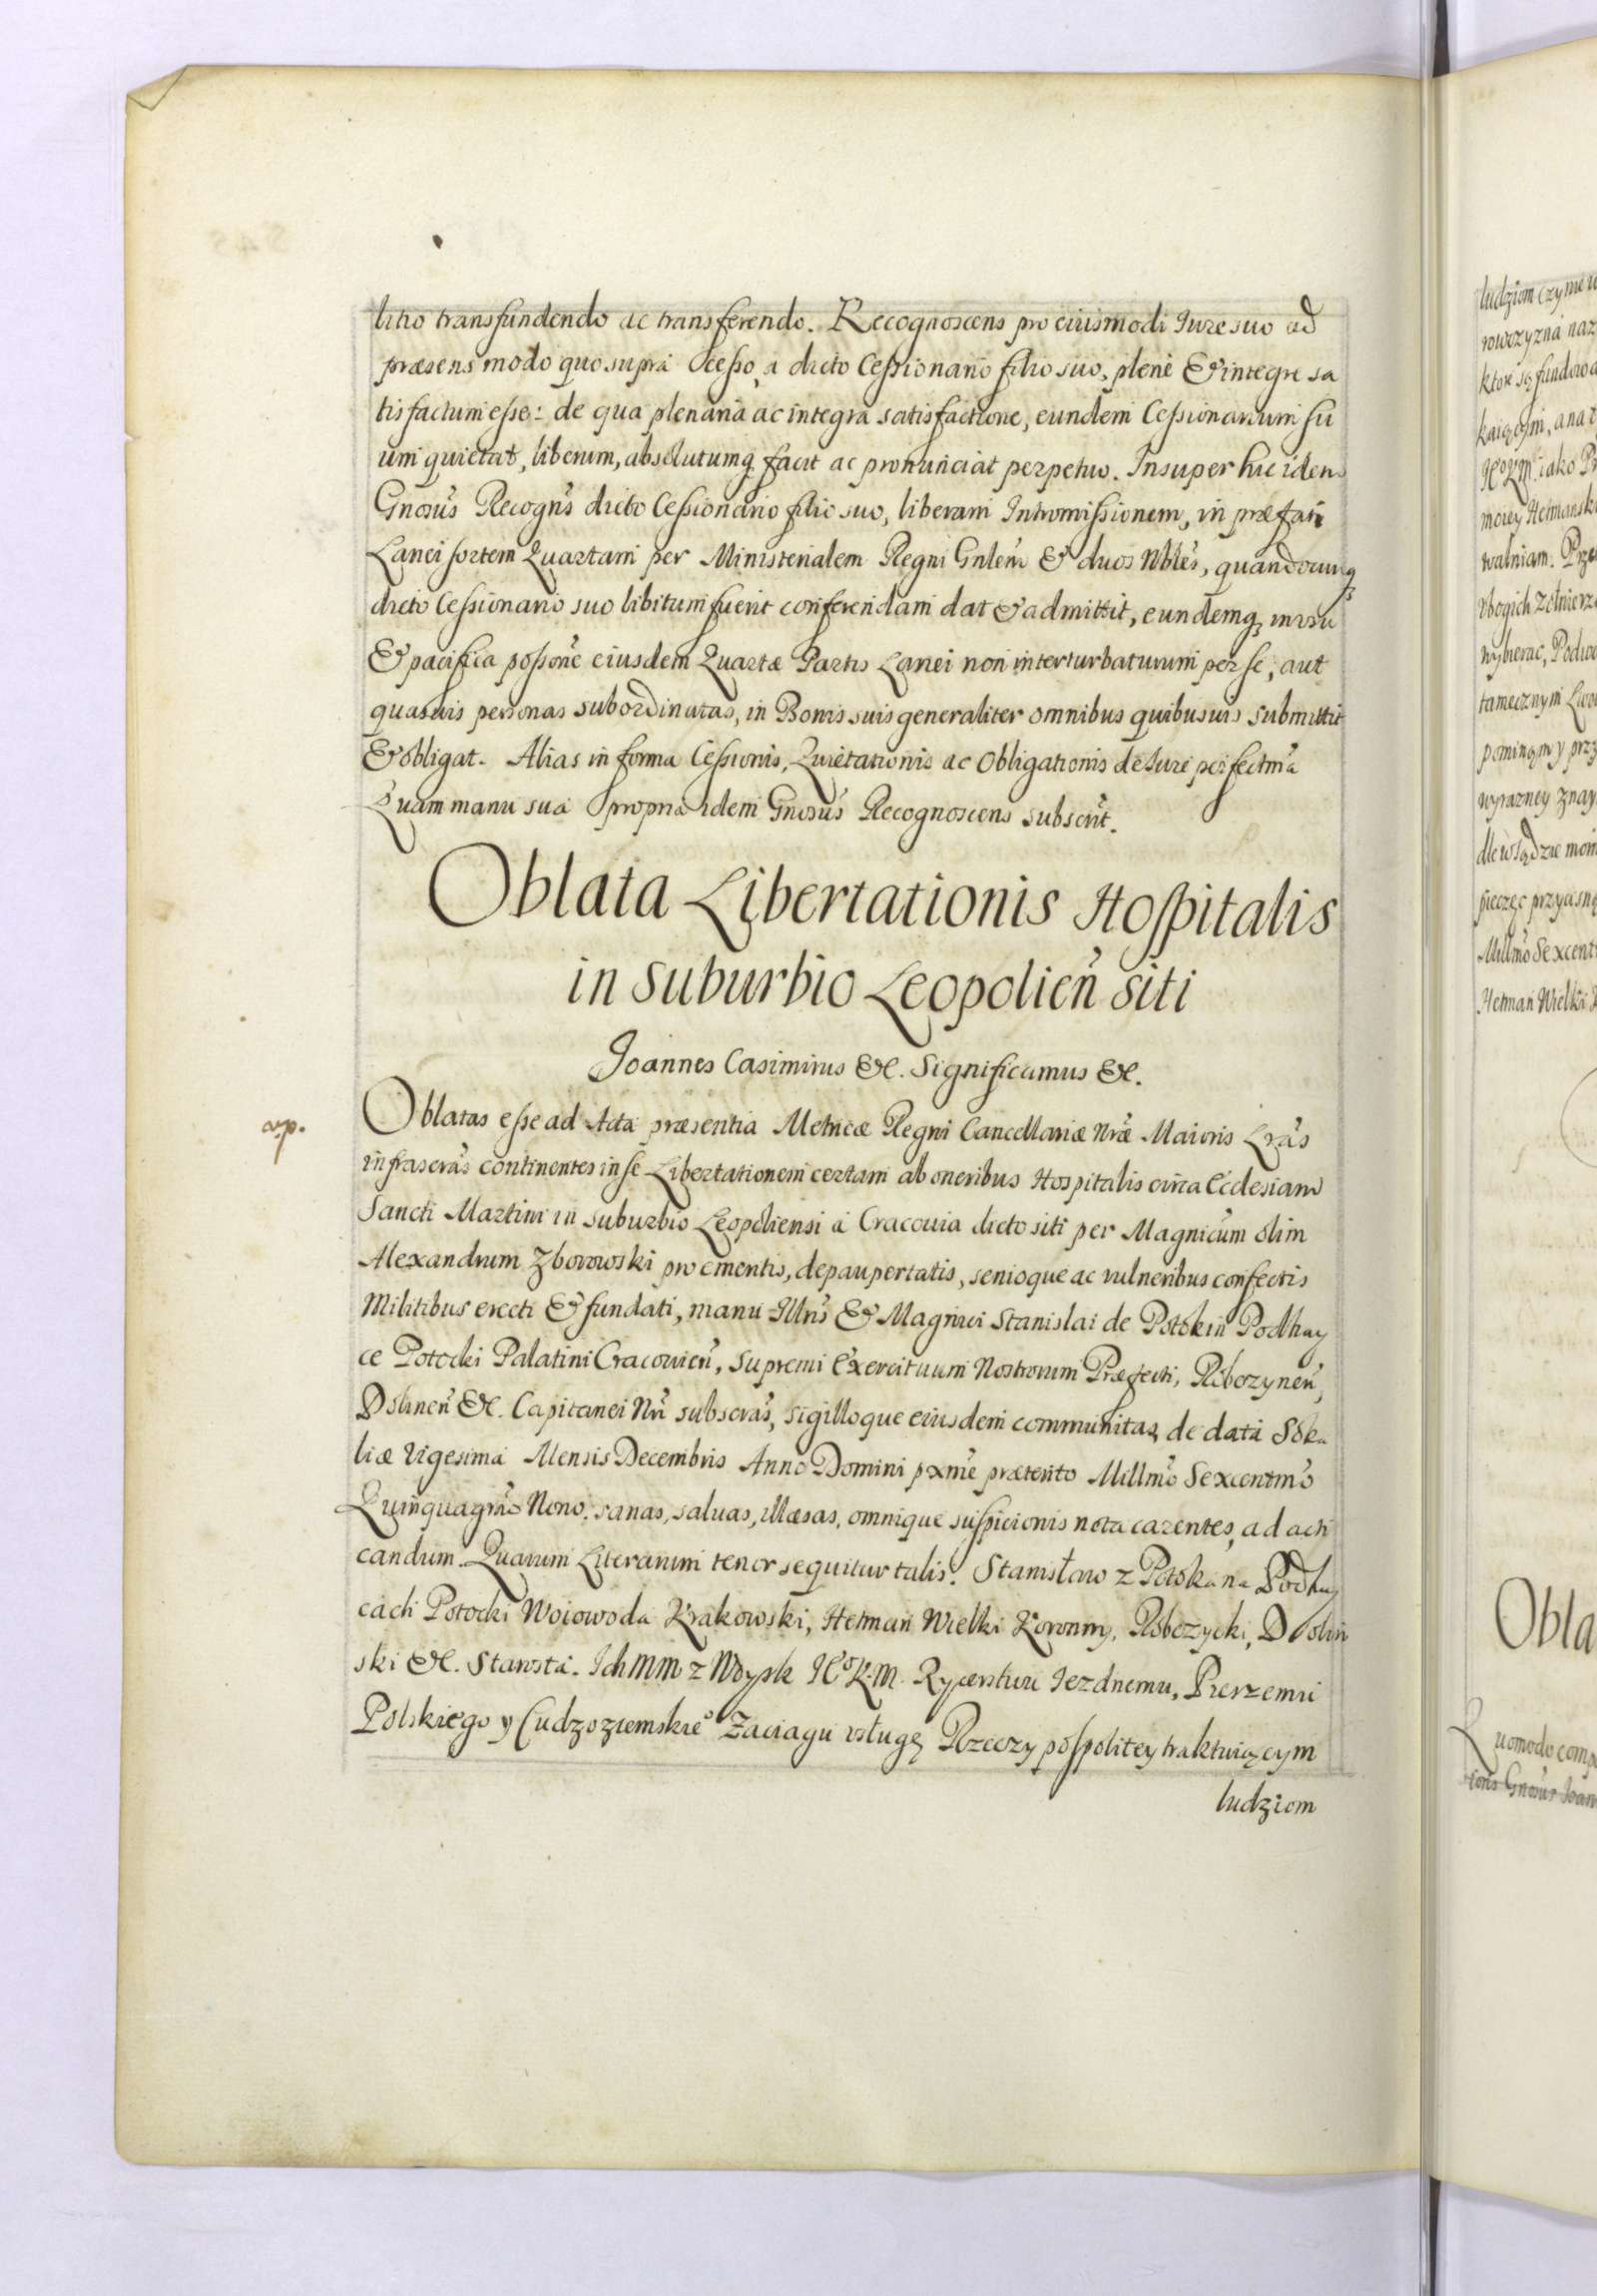 litio transfundendo ac transferendo. Recognoscens pro eiusmodi Jure suo ad
præsens modo quo supra cesso, a dicto Cessionario filio suo, plene & integre sa
tisfactum esse: de qua plenaria ac integra satisfactione, eundem Cessionarium su
um quietat, liberum, absolutumq facit ac pronunciat perpetuo. Insuper hic idem
Gnosus Recogns dicto Cessionario filio suo, liberam Intromissionem, in præfati
Lanei sortem Quartam per Ministerialem Regni Gnlem & duos Nbles, quandocunq
dicto Cessionario suo libitum fuerit conferendam dat & admittit, eundemq in usu
& pacifica possone eiusdem Quartæ Partis Lanei non interturbaturum per se, aut
quasuis personas subordinatas, in Bonis suis generaliter omnibus quibusuis submittit
& obligat. Alias in forma Cessionis, Quietationis ac Obligationis de Jure perfectma
Quam manu sua propria idem Gnosus Recognoscens subscrit.
Oblata Libertationis Hospitalis
in Suburbio Leopolien siti
Joannes Casimirus &c. Significamus &c.
Oblatas esse ad Acta præsentia Metricæ Regni Cancellariæ Nræ Maioris Lras
infrascras continentes in se Libertationem certam ab oneribus Hospitalis circa Ecclesiam
Sancti Martini in suburbio Leopoliensi a Cracouia dicto siti per Magnicum olim
Alexandrum Zborowski pro ementis, depaupertatis, senioque ac vulneribus confectis
Militibus erecti & fundati, manu Illris & Magnici Stanislai de Potok in Podhay
ce Potocki Palatini Cracouien, Supremi Exercituum Nostrorum Præfecti, Robczynen,
Dolinen &c. Capitanei Nri subscras, sigilloque eiusdem communitas, de data Soka
liæ Vigesima Mensis Decembris Anno Domini pxme præterito Millmo Sexcentmo
Quinquagmo Nono. sanas, saluas, illæsas, omnique suspicionis nota carentes, ad acti
candum. Quarum Literarum tenor sequitur talis. Stanisław z Potoka na Podhay
cach Potocki Woiowoda Krakowski, Hetman Wielki Koronny, Robczycki, Dolin
ski &c. Starosta. Ich MM z Woysk JEo K. M. Rycerstwu Jezdnemu, Pieszemu
Polskiego y Cudzoziemskieo Zaciagu vsługę Rzeczy pospolitey traktuiącym
ludziom